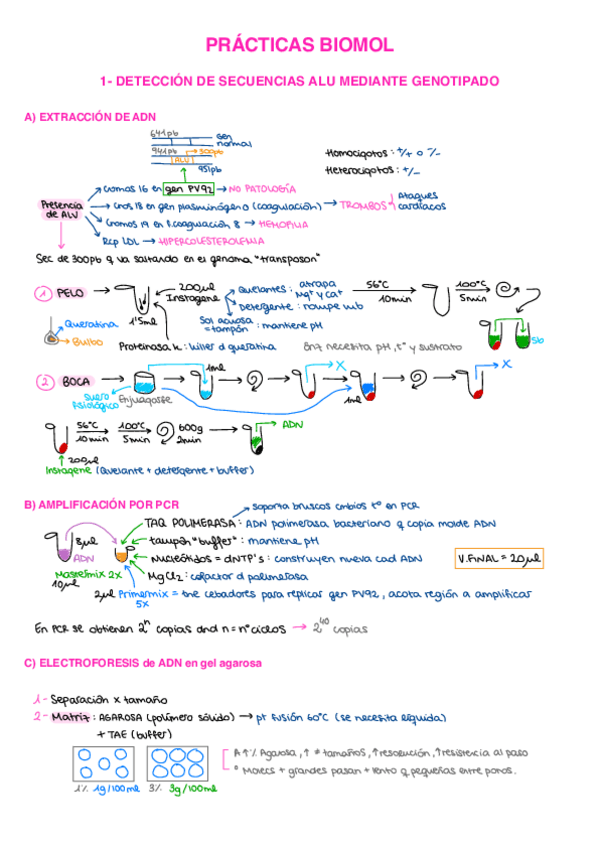 PRÁCTICAS BIOMOL
1- DETECCIÓN DE SECUENCIAS ALU MEDIANTE GENOTIPADO
A) EXTRACCIÓN DE ADN
641pb
gen normal
941pb → 300pb
ALU
951pb
Homocigotos: +/+ o -/-
Heterocigotos: +/-
Presencia de ALU
Cromos 16 en gen PV92 → NO PATOLOGÍA
Cros 18 en gen plasminógeno (coagulación) → TROMBOS
Ataques cardíacos
Cromos 19 en F. coagulación 8 → HEMOFILIA
Rcp LDL → HIPERCOLESTEROLEMIA
Sec de 300pb q va saltando en el genoma "transposon"
1 PELO
Queratina
Bulbo
1'5ml
200µl Instagene
Quelantes: atrapa Mg+ y Ca+
Detergente: rompe mb
Sol acuosa = tampón: mantiene pH
56°C 10min
100°C 5min
Sb
Proteinasa k: killer d queratina
Enz necesita pH, tº y sustrato
2 BOCA
suero fisiológico
Enjuagarse
1ml
X
1ml
X
56°C 10min
100°C 5min
600g 2min
ADN
200µl
Instagene (Quelante + detergente + buffer)
B) AMPLIFICACIÓN POR PCR
soporta bruscos cmbios tº en PCR
TAQ POLIMERASA: ADN polimerasa bacteriano q copia molde ADN
8µl
ADN
tampón "buffer": mantiene pH
Nucleótidos = dNTP's: construyen nueva cad ADN
V.FINAL = 20µl
Mastermix 2x
10µl
MgCl2: cofactor d polimerasa
2µl Primermix = tne cebadores para replicar gen PV92, acota región a amplificar
5x
En PCR se obtienen 2ⁿ copias dnd n = nº ciclos → 2⁴⁰ copias
C) ELECTROFORESIS de ADN en gel agarosa
1- Separación x tamaño
2- Matriz: AGAROSA (polímero sólido) → pt fusión 60°C (se necesita líquida)
+ TAE (buffer)
A ↑% Agarosa, ↑ ≠ tamaños, ↑resolución, ↑resistencia al paso
º Molecs + grandes pasan + lento q pequeñas entre poros.
1% 1g/100ml
3% 3g/100ml